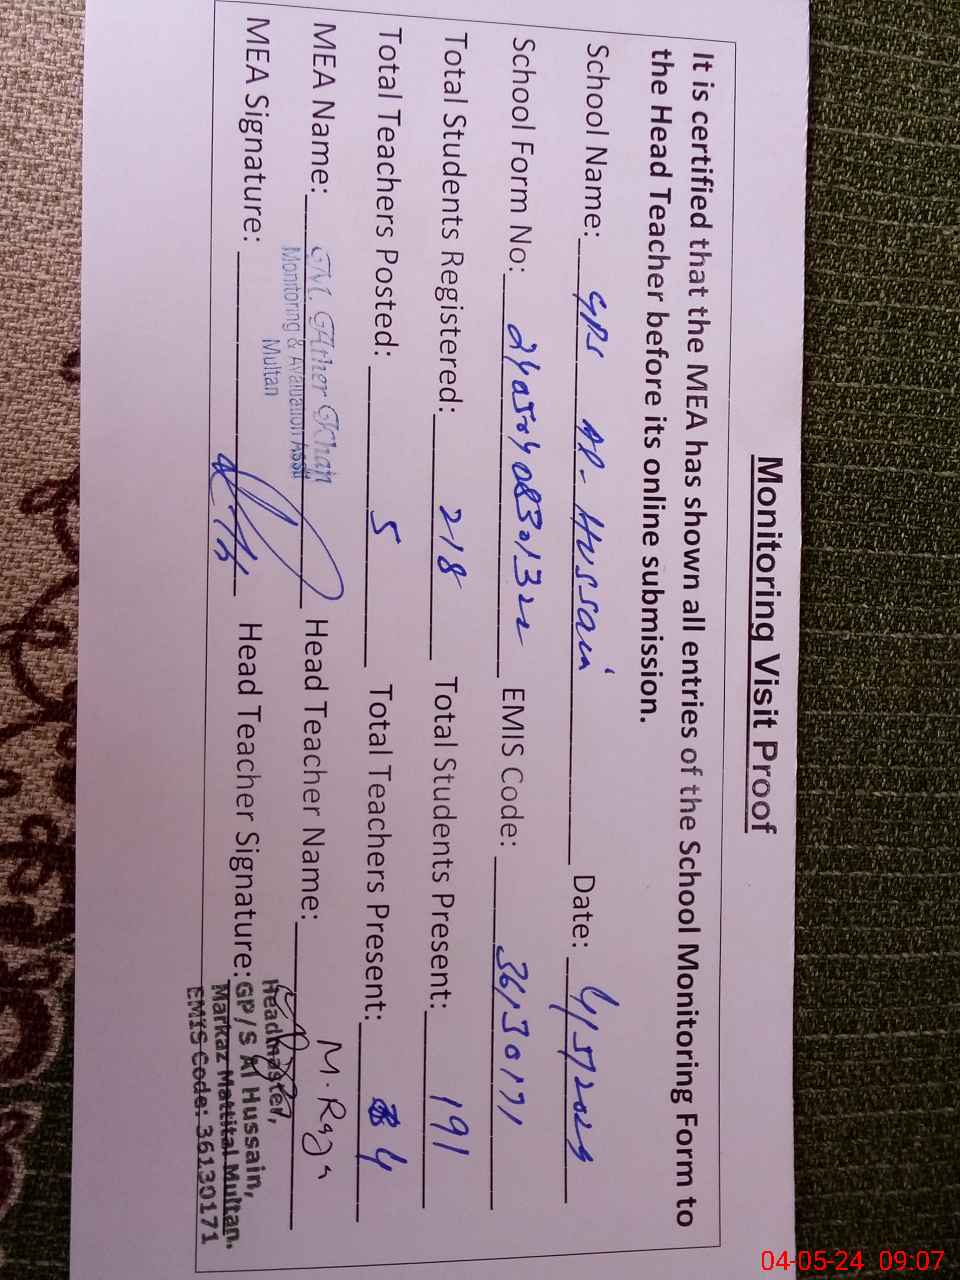 Monitoring Visit Proof
It is certified that the MEA has shown all entries of the School Monitoring Form to
the Head Teacher before its online submission.
School Name: GPS Al- Hussain Date: 4/5/2024
School Form No: EMIS Code: 36130171
Total Students Registered: 218 Total Students Present: 191
Total Teachers Posted: 5 Total Teachers Present: 4
MEA Name: M. Ather Khan Head Teacher Name: M. Raza
Monitoring & Avaluation Asstt
Multan
MEA Signature: Head Teacher Signature:
Headmaster,
GP/S Al Hussain,
Markaz Mattital Multan.
EMIS Code: 36130171
04-05-24 09:07